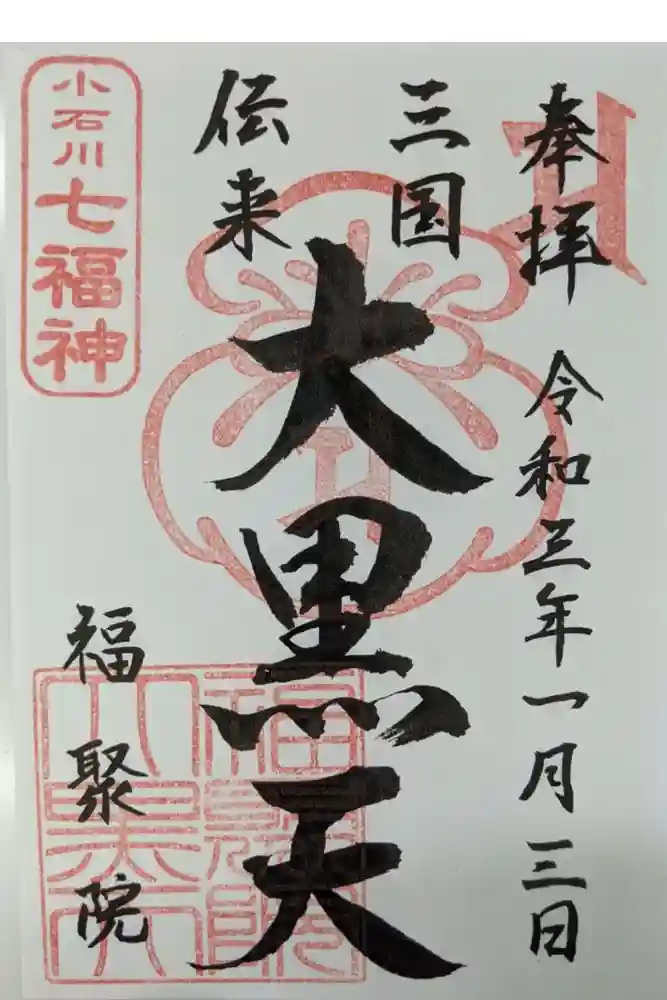 奉拝
令和三年一月三日
三国
伝来
大黒天
福聚院
小石川七福神
福聚院
大黒天